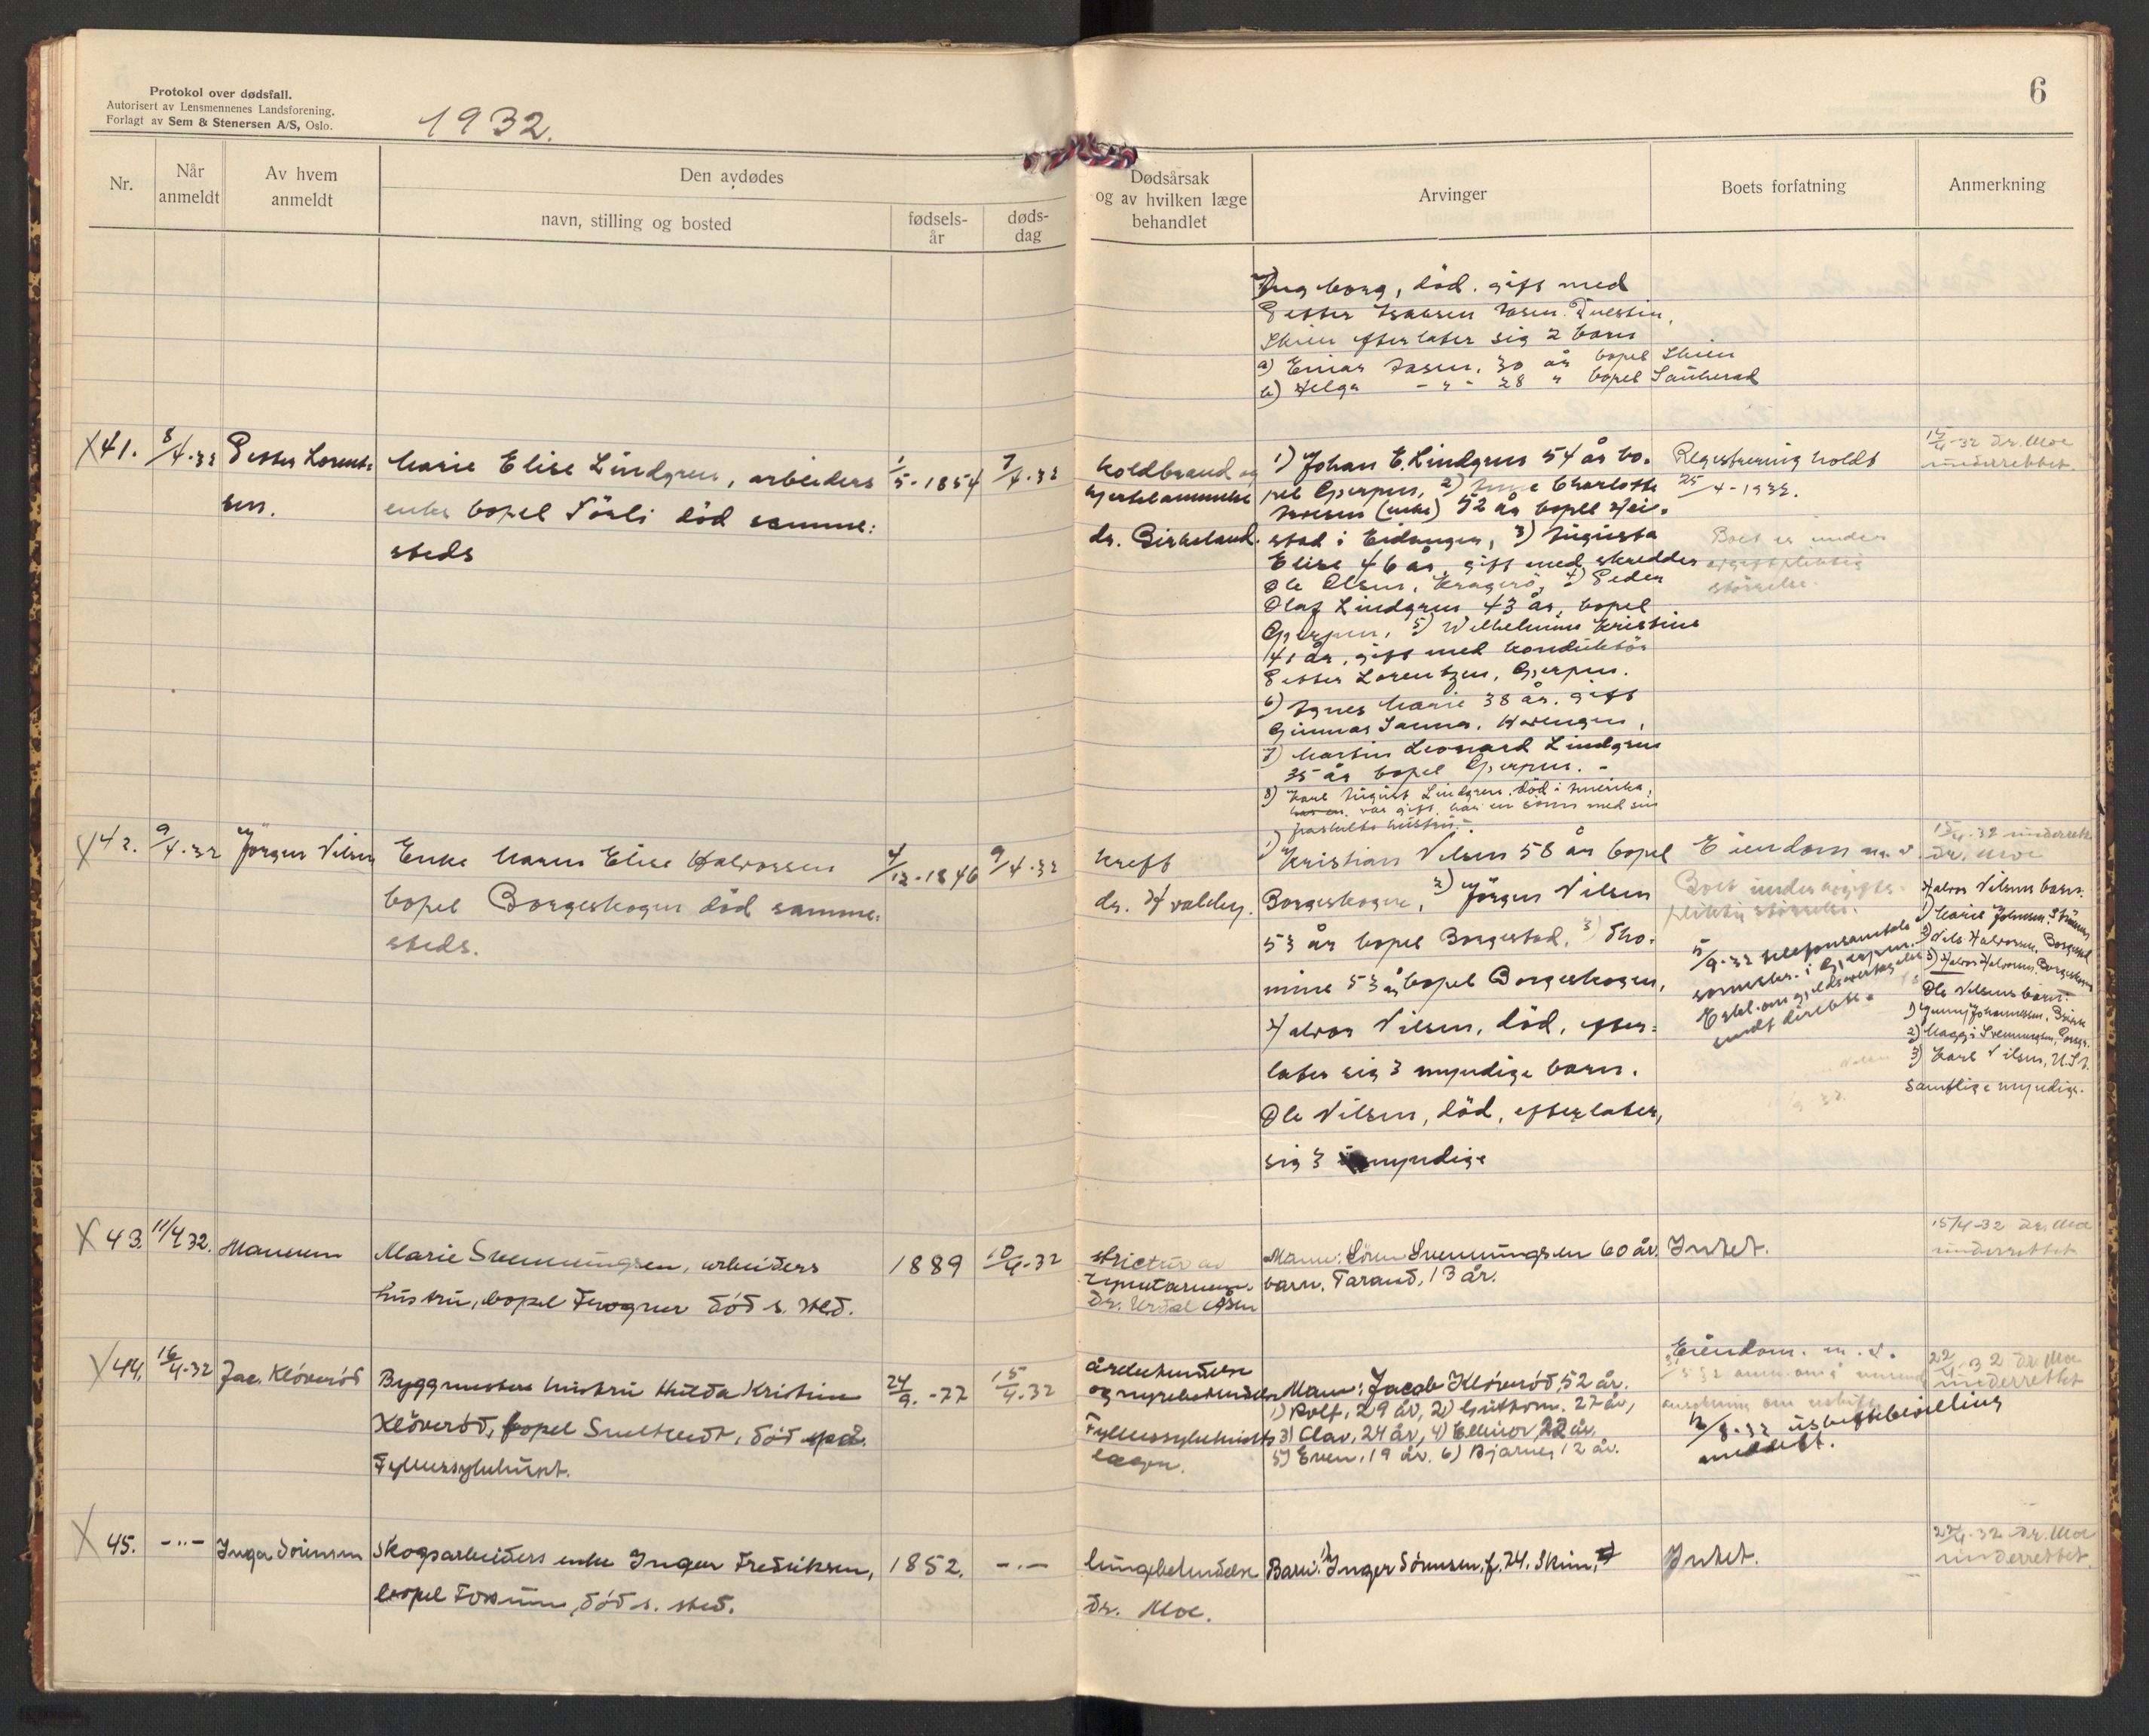 Protokol over dødsfall.
Autorisert av Lensmennenes Landsforening.
Forlagt av Sem & Stenersen A/S, Oslo.
1932.
6
Nr.
Når anmeldt
Av hvem anmeldt
Den avdødes
navn, stilling og bosted
fødsels-
år
døds-
dag
Dødsårsak
og av hvilken læge
behandlet
Arvinger
Boets forfatning
Anmerkning
Ingeborg, død. gift med
Petter Isaksen
Skien efterlater sig 2 barn
a) Einar 30 år bopel Skien
b) Helga - " - 28 " bopel Sauherad
X 41.
8/4-32
Petter Lorent:
sen.
Marie Elise Lindgren, arbeiders
enke bopel Törli död samme:
steds
1/5-1854
7/4-32
Koldbrand og
hjertelammelse
dr. Birkeland.
1) Johan E. Lindgren 54 år bo-
pel Gjerpen, 2) Charlotte
(enke) 52 år bopel Hei-
stad i Eidanger, 3) Augusta
Elise 46 år, gift med skredder
Ole Olsen, Kragerö, 4) Peder
Olaf Lindgren 43 år, bopel
Gjerpen, 5) Wilhelmine Kristine
41 år, gift med konduktör
Petter Lorentzen, Gjerpen.
6) Agnes Marie 38 år. gift
Gunnar Sanna,
7) Martin Leonard Lindgren
35 år bopel Gjerpen. -
8) Karl August Lindgren, död i Amerika,
var gift, har en sönn med sin
hustru. -
Registrering holdt
25/4-1932.
Boet er under
avgiftspliktig
störrelse.
15/4-32 Dr. Moe
underrettet.
X 42.
9/4-32
Jörgen Nilsen
Enke Maren Elise Halvorsen
bopel Borgeskogen död samme:
steds.
4/12-1846
9/4-32
Kreft
dr. Hvalby.
1) Kristian Nilsen 58 år bopel
Borgeskogen, 2) Jörgen Nilsen
53 år bopel Borgestad, 3) Tho-
mine 53 år bopel Borgeskogen,
Halvor Nilsen, död, efter:
later sig 3 myndige barn.
Ole Nilsen, död, efterlater,
sig 3 myndige
Eiendom m. v.
Boet under avgifts-
pliktig störrelse.
5/9-32 telefonsamtale
sorenskr. i Gjerpen.
Erkl. om gjeldsovertagelse
sendt direkte.
15/4-32 underrett.
Dr. Moe
Halvor Nilsens barn.
1) Marie Johnsen,
2) Nils Halvorsen, Borgestad
3) Halvor Halvorsen, Borgeskogen
Ole Nilsens barn.
1) Gunny Johannessen,
2) Maggi Svenningsen, Porsgr.
3) Karl Nilsen, U.S.A.
Samtlige myndige.
X 43.
11/4 32.
Mannen
Marie Svenningsen, arbeiders
hustru, bopel Frogner död s. sted.
1889
10/4-32
strictur av
Dr. Urdal
Mann: Sören Svenningsen 60 år.
barn, Tarand, 13 år.
Intet.
15/4-32 Dr. Moe
underrettet
X 44.
16/4-32
Jac. Klöveröd
Byggmesters hustru Hulda Kristine
Klöveröd, bopel Smeltvedt, död på
Fylkessykehuset.
24/9.-77
15/4.32
årebetendelse
og nyrebetendelse
Fylkessykehusets
lægen.
Mann: Jacob Klöveröd, 52 år.
1) Rolf, 29 år, 2) Guttorm. 27 år,
3) Olav, 24 år, 4) Ellinor, 22 år.
5) Even, 19 år. 6) Bjarne, 12 år.
Eiendom. m. v.
12/8-32 uskiftebevilling
meddelt.
22/4-32 Dr Moe
underrettet
X 45.
-"-
Inga Sörensen
Skogsarbeiders enke Inger Fredriksen,
bopel Fossum, död s. sted.
1852.
-"-
lungebetendelse
Dr. Moe.
Barn: 1) Inger Sörensen, f. 74. Skien,
Intet.
22/4-32 Dr. Moe
underrettet.